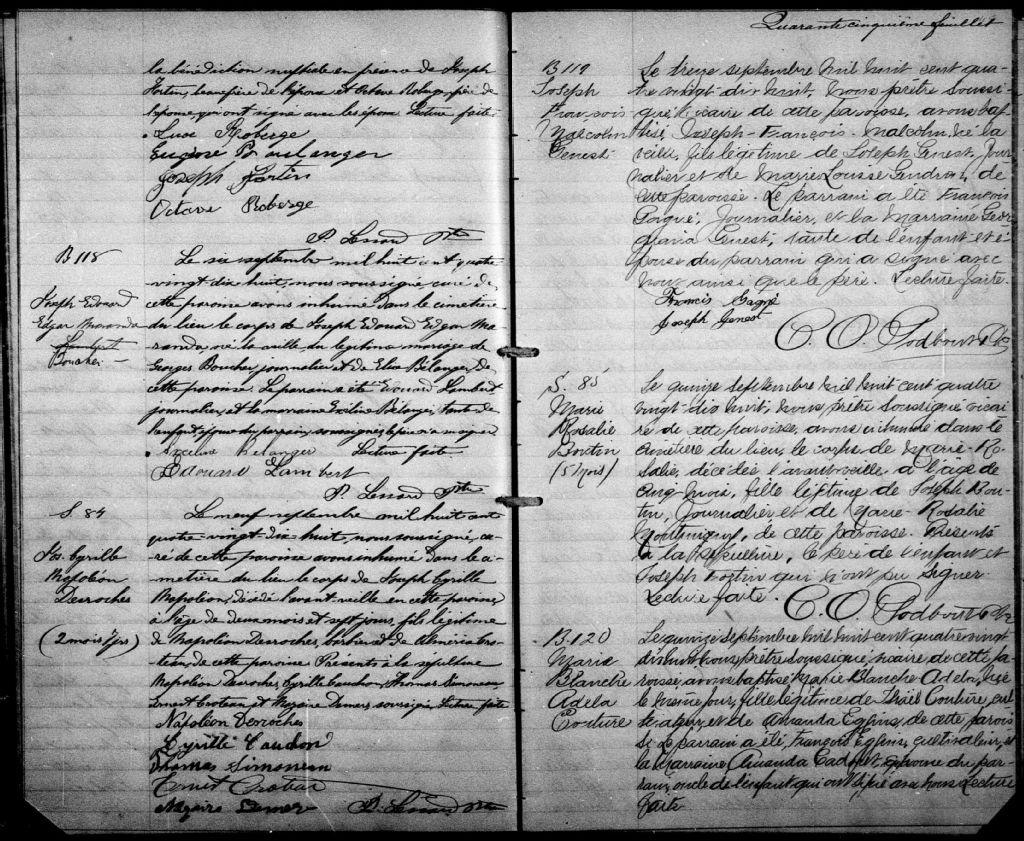 la bénédiction nuptiale en présence de Joseph
Fortin, beaufrère de l'épouse et Octave Roberge, père de
l'épouse, qui ont signé avec les époux. Lecture faite.
Luce Roberge
Eugène Boulanger
Joseph Fortin
Octave Roberge
P. Lessard Ptre
B 118
Joseph Edouard
Edgar Maranda
Boucher
Le six septembre mil huit cent quatre
vingt dix huit, nous soussigné curé de
cette paroisse avons inhumé dans le cimetière
du lieu le corps de Joseph Edouard Edgar Ma
randa, né la veille, du légitime mariage de
Georges Boucher, journalier et de Eliza Bélanger, de
cette paroisse. Le parrain a été Edouard Lambert
journalier, et la marraine Evéline Bélanger, tante de
l'enfant, épouse du parrain, soussignés, le père
Bélanger Lecture faite
Edouard Lambert
P. Lessard Ptre
S. 84
Jos. Cyrille
Napoléon
Desroches
(2 mois 7 jrs)
Le neuf septembre mil huit cent
quatre-vingt dix huit, nous soussigné, cu-
ré de cette paroisse avons inhumé dans le ci-
metière du lieu le corps de Joseph Cyrille
Napoléon, décédé l'avant-veille en cette paroisse,
à l'âge de deux mois et sept jours, fils légitime
de Napoléon Desroches, barbier et de
de cette paroisse. Présents à la sépulture
Napoléon Desroches, Cyrille Thomas Simoneau,
Ernest Croteau et Nazaire Demers, soussignés. Lecture faite
Napoléon Desroches
Cyrille
Thomas Simoneau
Ernest Croteau
Nazaire Demers P. Lessard Ptre
Quarante cinquième feuillet
B 119
Joseph
François
Malcolm
Genest
Le treize septembre mil huit cent qua-
tre vingt-dix huit, nous prêtre soussi-
gné vicaire de cette paroisse, avons bap-
tisé Joseph-François-Malcolm, né la
veille, fils légitime de Joseph Genest, jour
nalier et de Marie Louise Gendron, de
cette paroisse. Le parrain a été François
Gagné, journalier, et la marraine Geor
giana Genest, tante de l'enfant et é-
pouse du parrain qui a signé avec
nous ainsi que le père. Lecture faite.
Francis Gagné
Joseph Genest
C. O. Godbout Ptre
S. 85
Marie
Rosalie
Boutin
(5 mois)
Le quinze septembre mil huit cent quatre
vingt-dix huit, nous, prêtre soussigné vicai
re de cette paroisse, avons inhumé dans le
cimetière du lieu, le corps de Marie-Ro
salie, décédée l'avant-veille à l'âge de
cinq mois, fille légitime de Joseph Bou-
tin, journalier et de Marie-Rosalie
Montminy, de cette paroisse. Présents
à la sépulture, le père de l'enfant et
Joseph qui n'ont pu signer.
Lecture faite.
C. O. Godbout Ptre
B. 120
Marie
Blanche
Adela
Couture
Le quinze septembre mil huit cent quatre vingt
dix huit nous, prêtre soussigné, vicaire de cette pa-
roisse, avons baptisé Marie Blanche Adela, née
le même jour, fille légitime de Couture, cul
tivateur, et de Amanda de cette parois
se. Le parrain a été, François cultivateur, et
la marraine Amanda épouse du par-
rain, oncle de l'enfant qui ont signé avec nous. Lecture
faite